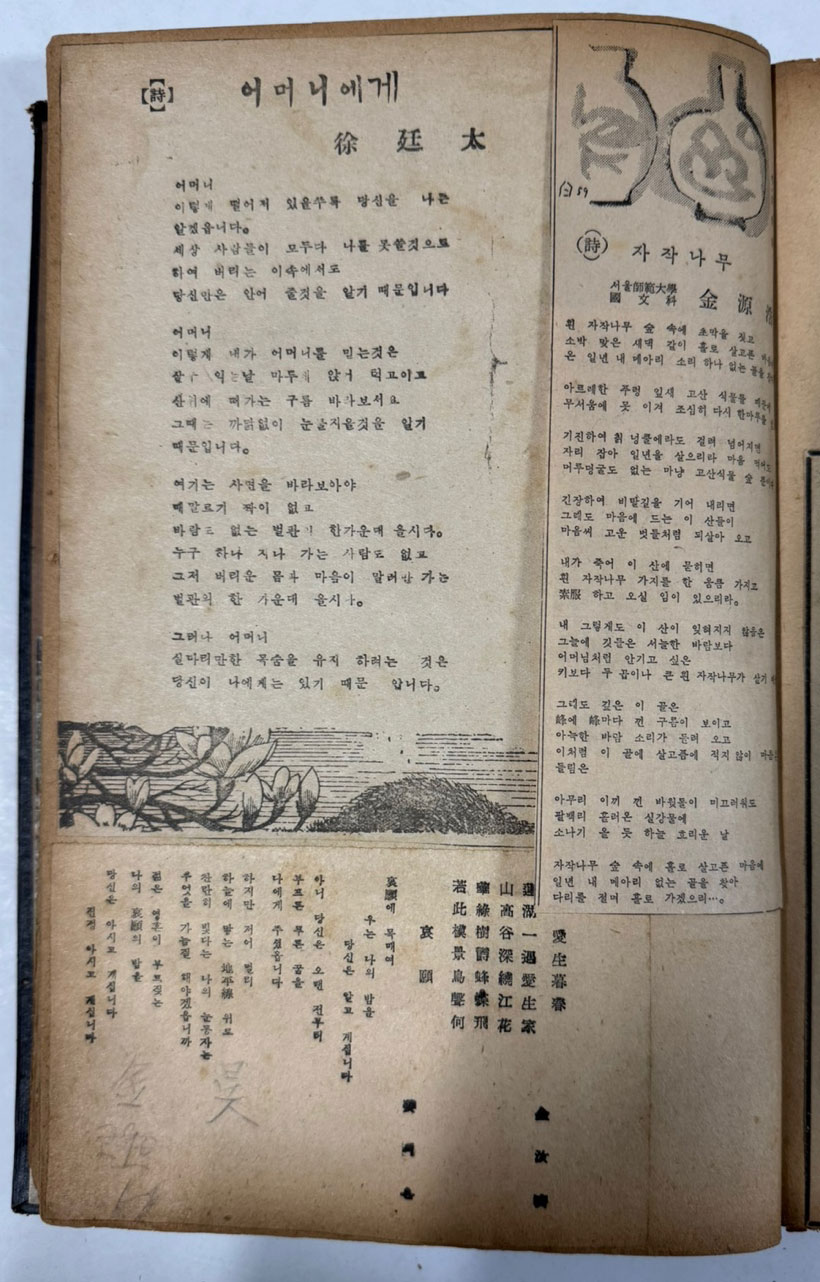 【詩】 어머니에게
徐廷太
어머니
이렇게 떨어져 있을쑤록 당신을 나는
알겠읍니다。
세상 사람들이 모두다 나를 못쓸것으로
하여 버리는 이속에서도
당신만은 안어 줄것을 알기 때문입니다
어머니
이렇게 내가 어머니를 믿는것은
살구 익는날 마루에 앉어 먹고이고
산위에 떠가는 구름 바라보서요
그때는 까닭없이 눈물지을것을 알기
때문입니다。
여기는 사면을 바라보아야
메말르기 짝이 없고
바람도 없는 벌판의 한가운데 올시다。
누구 하나 지나 가는 사람도 없고
그저 버리운 몸과 마음이 말러만 가는
벌판의 한 가운데 올시다。
그러나 어머니
실다리만한 목숨을 유지 하려는 것은
당신이 나에게는 있기 때문 입니다。
59
(詩) 자작나무
서울師範大學
國文科 金源
흰 자작나무 숲 속에 초막을 짓고
소박 맞은 새댁 같이 홀로 살고픈
온 일년 내 메아리 소리 하나 없는 골을
아르레한 푸렁 잎새 고산 식물들
무서움에 못 이겨 조심히 다시 한마루를
기진하여 칡 넝쿨에라도 걸려 넘어지면
자리 잡아 일년을 살으리라 마음
머루덩굴도 없는 마냥 고산식물 숲
긴장하여 비탈길을 기어 내리면
그래도 마음에 드는 이 산들이
마음씨 고운 벗들처럼 되살아 오고
내가 죽어 이 산에 묻히면
흰 자작나무 가지를 한 움큼 가지고
素服 하고 오실 임이 있으리라。
내 그렇게도 이 산이 잊혀지지 않음은
그늘에 깃들은 서늘한 바람보다
어머님처럼 안기고 싶은
키보다 두 곱이나 큰 흰 자작나무가 살기
그래도 깊은 이 골은
峰에 峰마다 낀 구름이 보이고
아늑한 바람 소리가 들려 오고
이처럼 이 골에 살고픔에 적지 않이 마음
들림은
아무리 이끼 낀 바윗돌이 미끄러워도
팔백리 흘러온 실강물에
소나기 올 듯 하늘 흐리운 날
자작나무 숲 속에 홀로 살고픈 마음에
일년 내 메아리 없는 골을 찾아
다리를 절며 홀로 가겠으리…。
愛生暮春
金汝
一過愛生家
山高谷深繞江花
綠樹 蜂蝶飛
若此樓景鳥聲何
哀願
哀願에 목메여
우는 나의 밤을
당신은 알고 게십니다
아니 당신은 오랜 전부터
부르튼 푸른 꿈을
나에게 주셨읍니다
하지만 저어 멀리
하늘에 닿는 地平線 위로
찬란히 빛나는 나의 눈동자는
무엇을 가늠질 해야겠읍니까
젊은 영혼이 부르짖는
나의 哀願의 밤을
당신은 아시고 게십니다
진정 아시고 게십니다